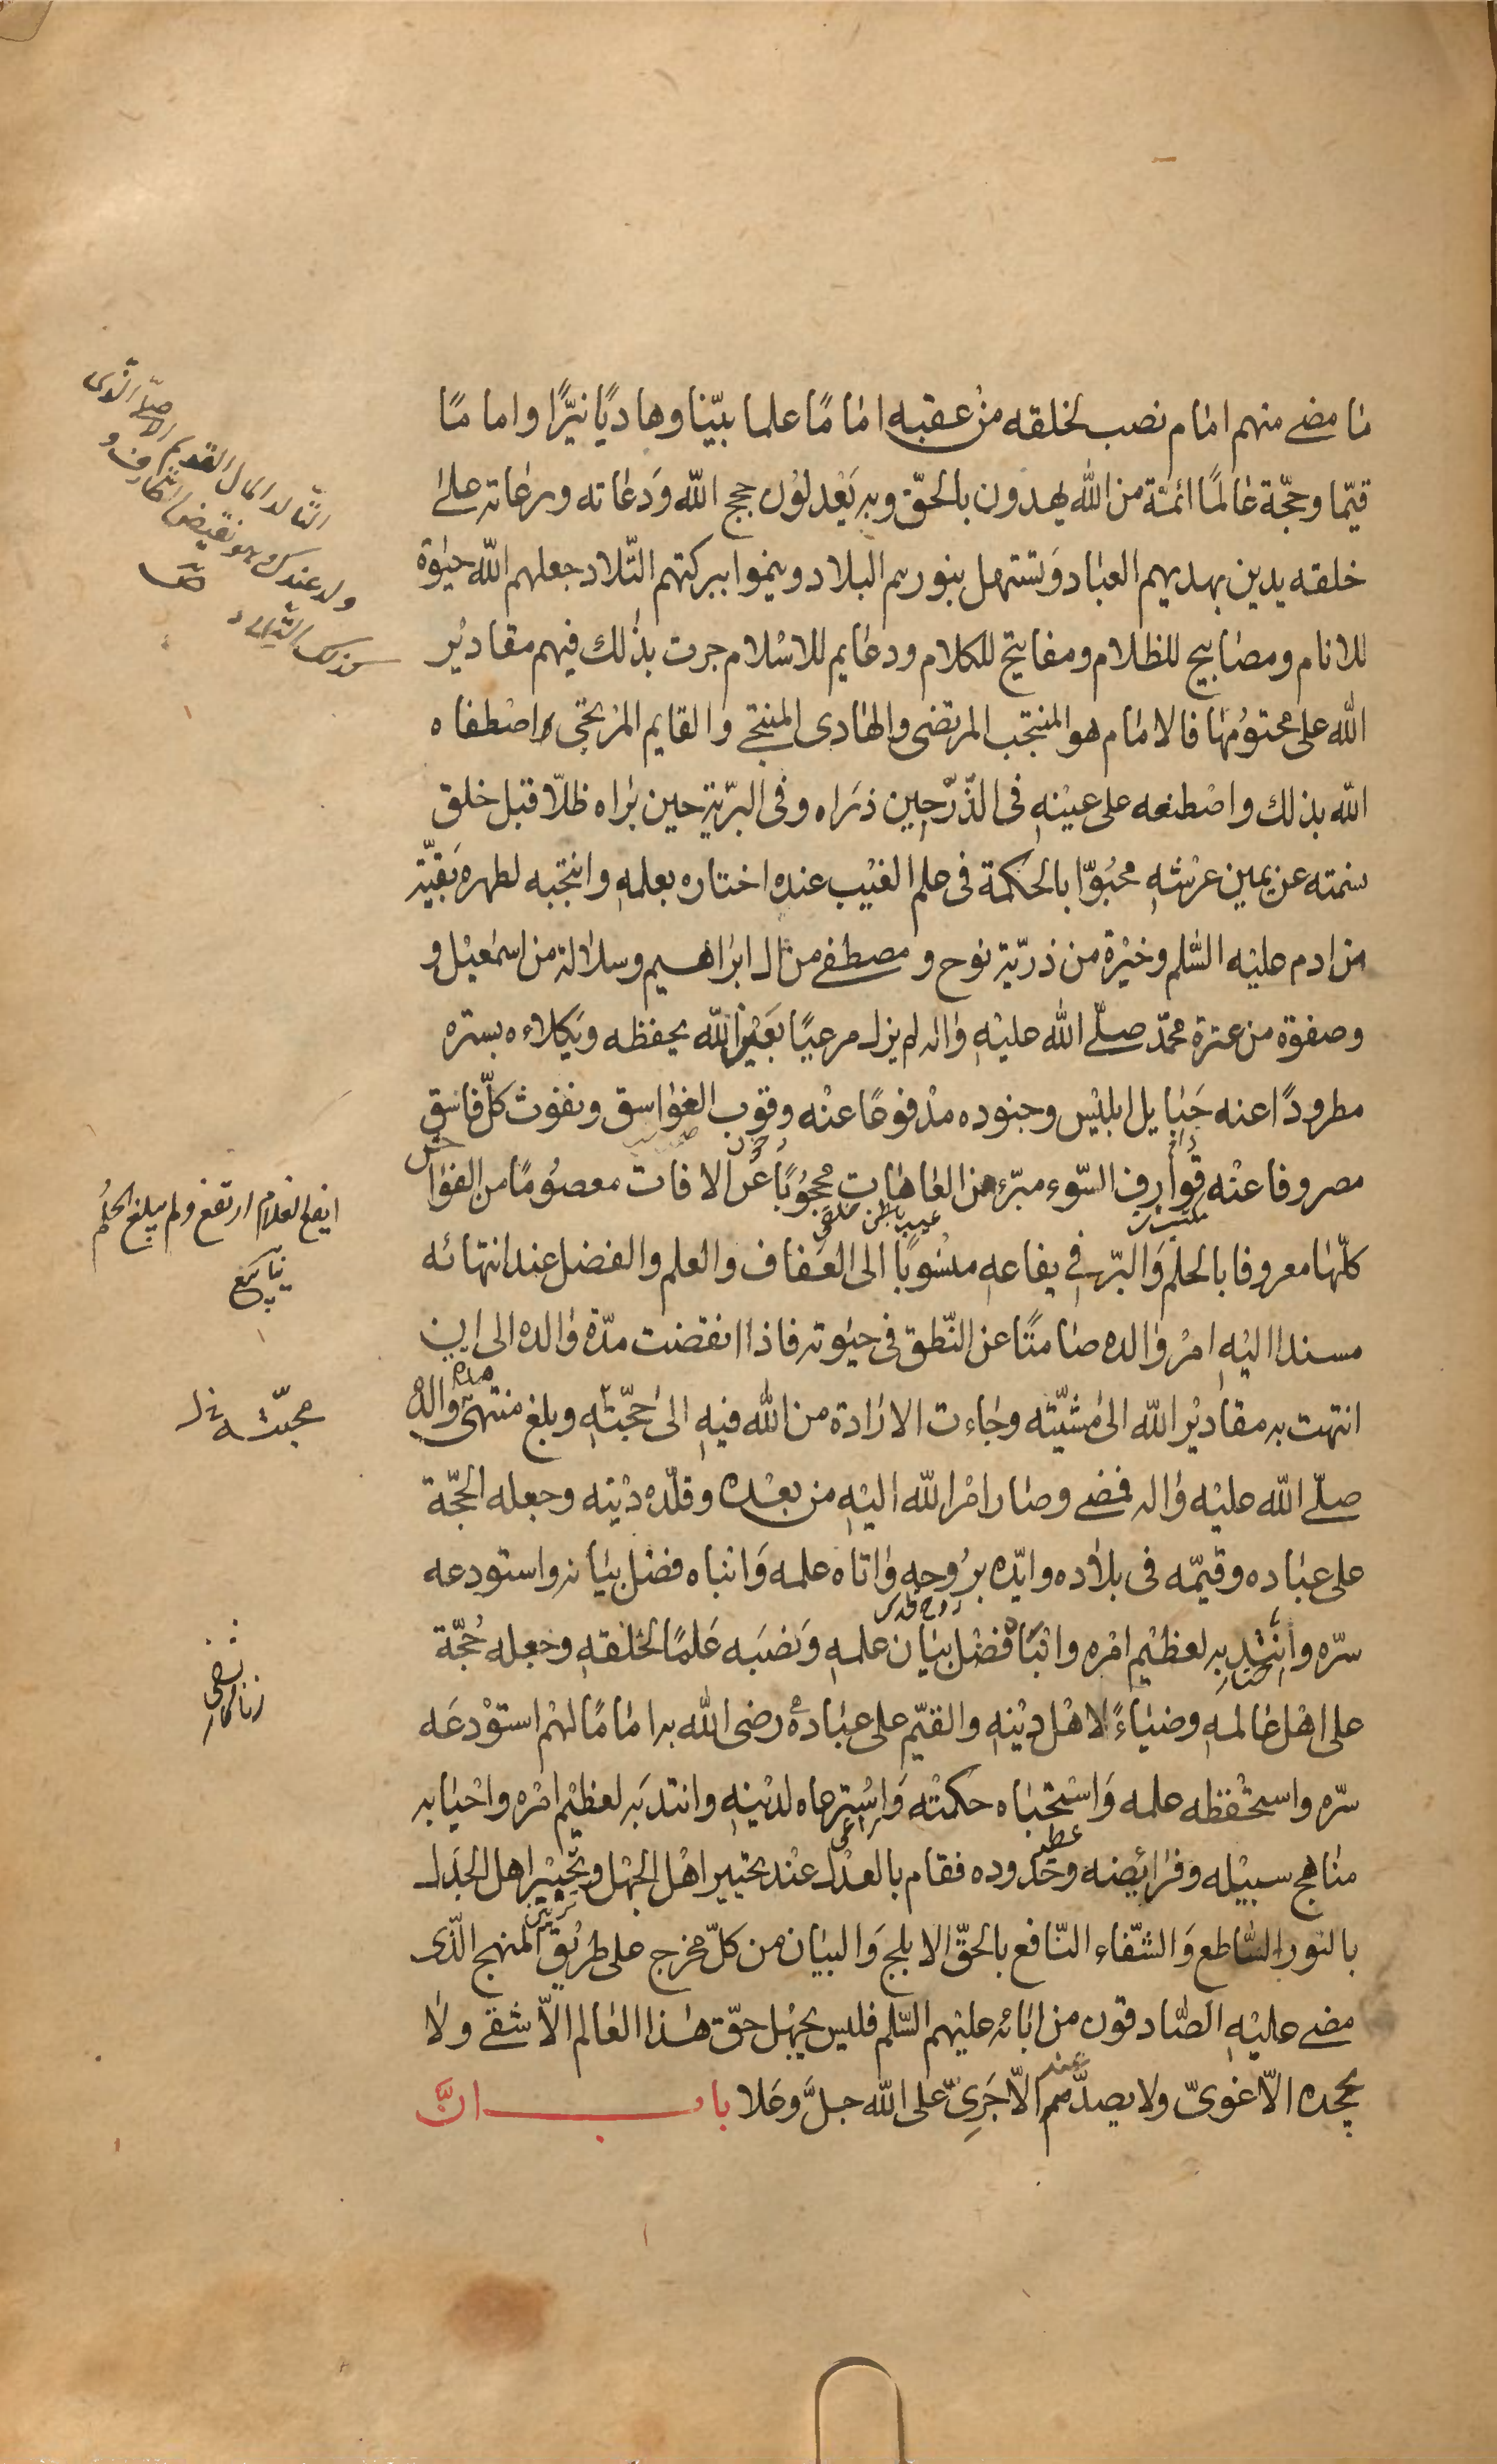 ما مضى منهم امام نصب لخلقه من عقبه اماما علما بيّنا وهاديًا نيّرًا واماما
قيّما وحجّة عالمًا ائمّة من الله يهدون بالحقّ وبه يَعْدلوُن حجج الله وَدعاته ورعاته على
خلقه يدين بهديهم العباد وَتستهل بنورهم البلاد وينموا ببركتهم التّلاد جعلهم الله حيوة
للانام ومصابيح للظلام ومفاتيح للكلام ودعايم للاسْلام جرت بذلك فيهم مقاديْر
الله على محتوُمها فالامام هو المنتجب المرتضى والهادى المنتجى والقايم المرتجى واصْطفاه
الله بذلك واصْطنعه على عيْنهِ فى الذّرّ حين ذرَاه وفى البرّية حين برَاه ظلّا قبل خلق
نسمته عن يمين عرْشهِ محبُوّا بالحكمة فى علم الغيْب عنده اختاره بعلمهِ وانتجبه لطهره بَقيّة
من ادم عليْه السّلم وخيْرة من ذرّية نوح ومصطفى من ال ابراهيم وسلالة من اسمعيْل و
وصفوة من عترة محمّد صلّى الله عليْهِ واله لم يزل مرعيًا بعَيْن الله يحفظه ويَكلاءه بستره
مطرودًا عنه حَبايل ابليْس وجنوده مدْفوعًا عنْه وقوب الغواسق ونفوث كلّ فاسق
مصروفا عنْه قَوارف السّوء مبرّء من العاهات محجُوبًا عَن الافات معصُومًا من الفواحش
كلّها معروفا بالحلم وَالبرّ فى يفاعهِ منسُوبًا الى العَفاف والعلم والفضل عند انتهائه
مسندا اليْهِ امْرُ والده صامتًا عن النّطق فى حيوته فاذا انقضت مدّة والده الى ان
انتهت به مقاديْر الله الى مشيّته وجاءت الارادة من الله فيهِ الى حجّتهِ وبلغ منتهى مدة والدهُ
صلّى الله عليْه واله فمضى وصار امْر الله اليْهِ من بعْده وقلّده ديْنه وجعله الحجّة
على عباده وقيّمه فى بلاده وايّده برُوحهِ واتاه علمه وَانباه فضل بيانه واستودعه
سرّه وانتدبه لعظيْم امْره وانْبَاهُ فضْل بيَان علمهِ وَنصَبه عَلمًا لخلقهِ وجعله حُجّة
على اهْل عالمهِ وضياءً لاهْل ديْنهِ والقيّم على عبادهُ رضى الله به امامًا لهُمْ استوْدعَه
سرّه واستحْفظه علمه وَاسْتخباه حكمتْه وَاسْترعاه لديْنهِ وانتدبَه لعظيْم امْره واحْيا به
مناهج سبيْله وفرائضه وحُدوده فقام بالعدْل عنْد تحيير اهْل الجهْل وتحْييْر اهل الجدَل
بالنور السّاطع وَالشّفاء النّافع بالحقّ الابلج وَالبيان من كلّ مخرج على طرْيق المنهج الّذى
مضى عليْهِ الصّادقون من ابائه عليْهم السّلم فليس يجهْل حقّ هذا العالم الّا شقى ولا
يجحده الّا غوىّ ولا يصدّ عنه الّا جَرِىّ على الله جلّ وعَلا باب انَّ
التّالد المال القديم الاصلىّ الذى
ولد عندك وهو نقيض الطارف و
كذلك التلاد
ص
ايفع الغلام ارتفع ولم يبلغ الحُلم
محبّته خ ل
راعى
عطية
روح القدس
عيب